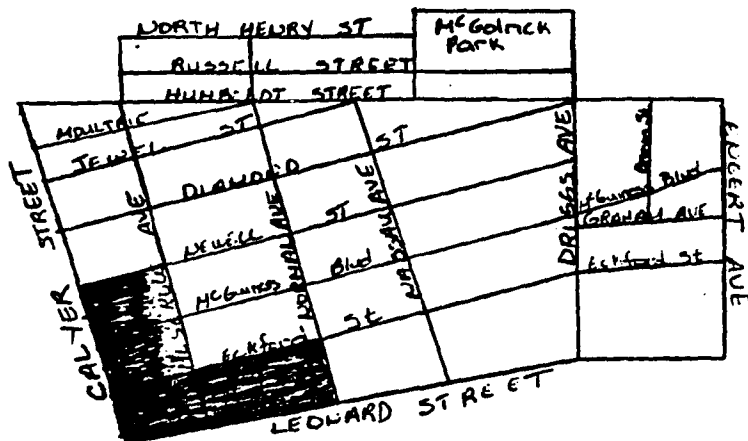 NORTH HENRY ST
McGolrick
Park
RUSSELL STREET
HUMBOLDT STREET
MOULTRIE
ST
JEWEL
DIAMOND ST
STREET
AVE
CALYER
NEWELL ST
McGuiness Blvd
Eckford St
NORMAL AVE
NASSAU AVE
DRIGGS AVE
McGuiness Blvd
GRAHAM AVE
Eckford St
ENGERT AVE
LEONARD STREET